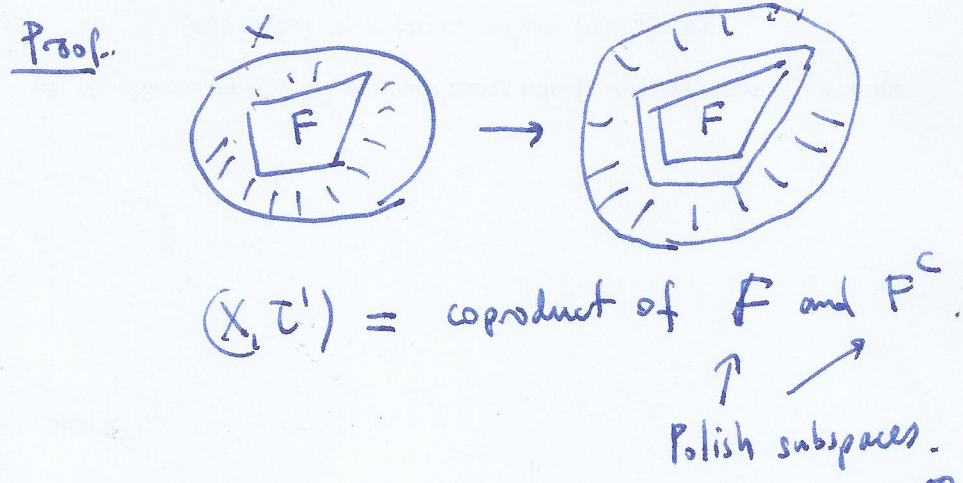 Proof.
X
F
F
(X, τ') = coproduct of F and F^c.
Polish subspaces.